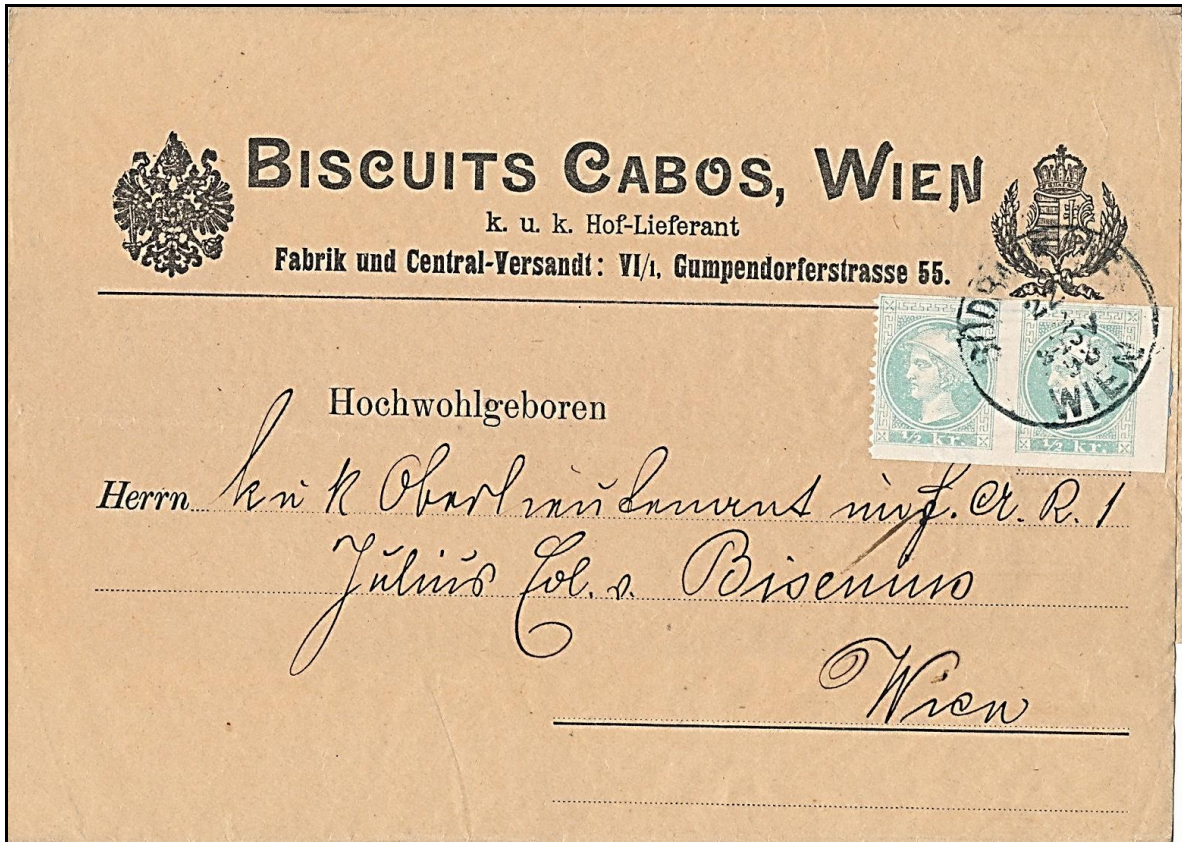 BISCUITS CABOS, WIEN
k. u. k. Hof-Lieferant
Fabrik und Central-Versandt: VI/1, Gumpendorferstrasse 55.
½ kr. ½ kr.
WIEN
Hochwohlgeboren
Herrn k u k Oberlieutenant A. R. 1
Julius v.
Wien